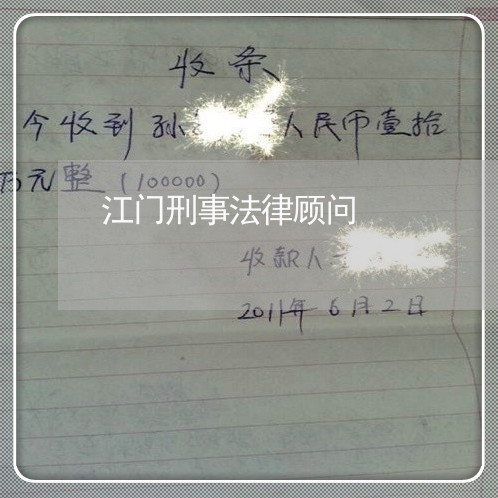 收条
今收到孙 人民币壹拾
万元整(100000)
江门刑事法律顾问
收款人
2011年6月2日